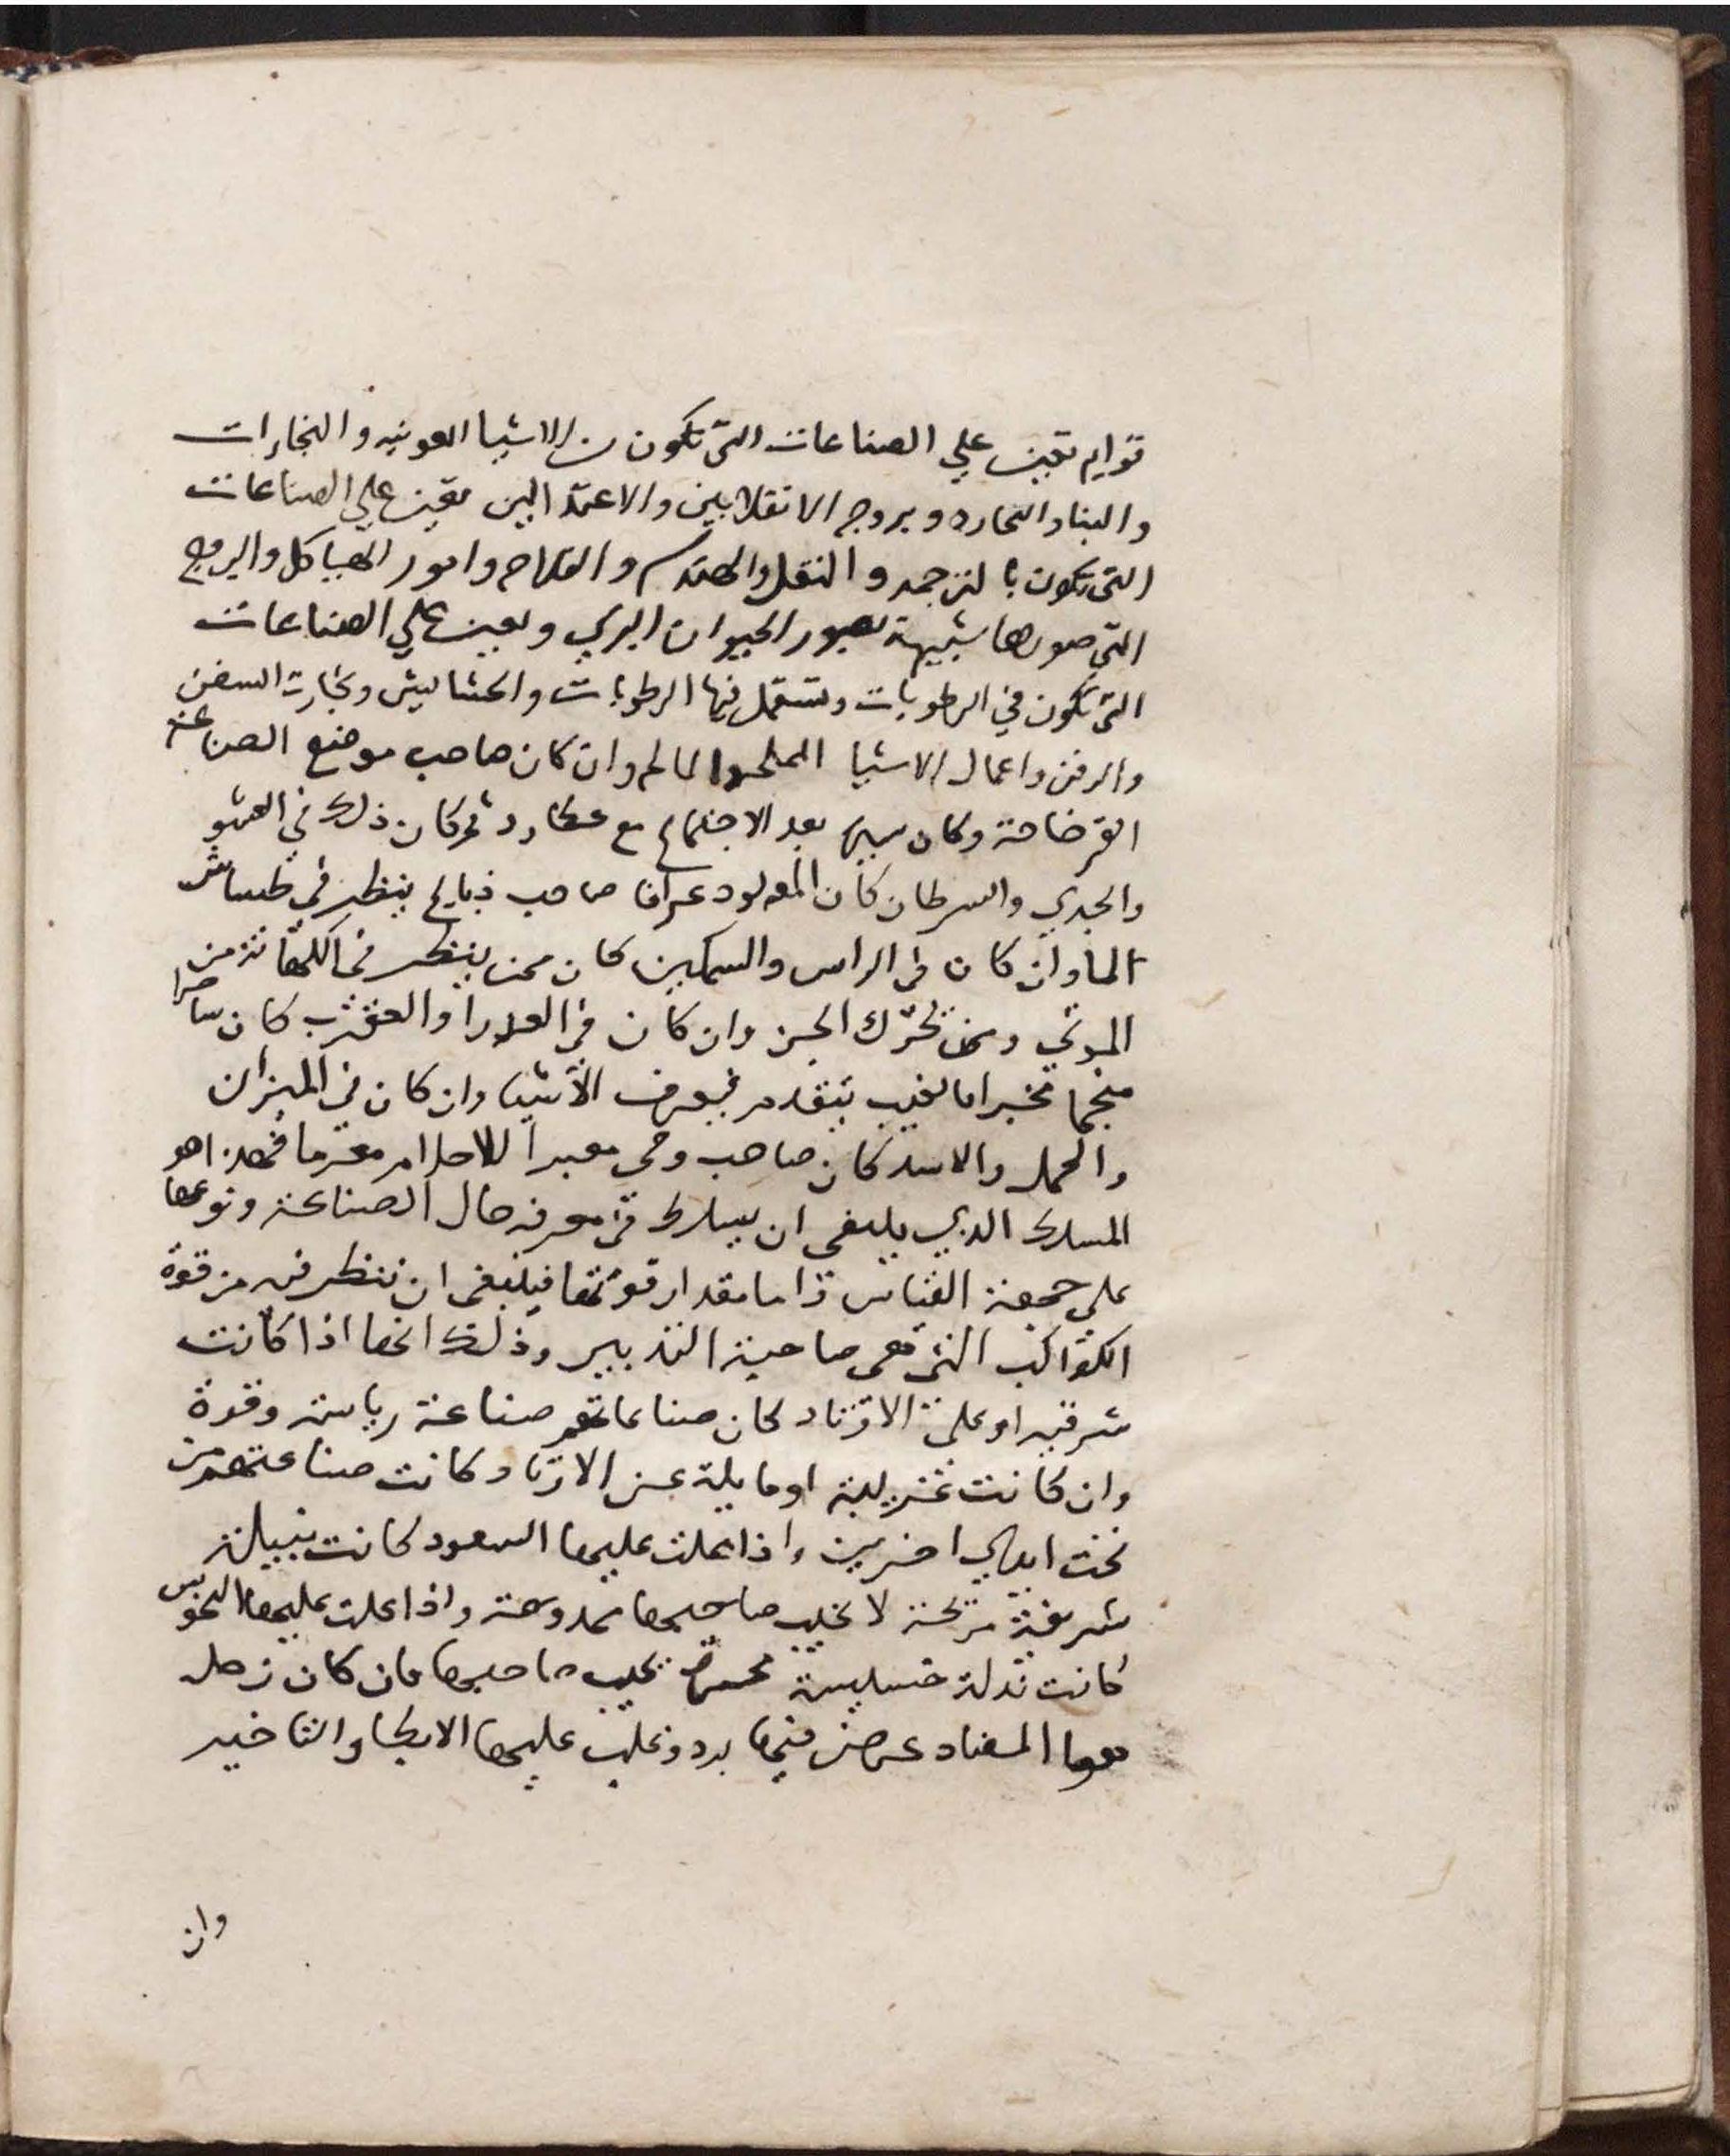 قوايم تعين علي الصناعات التي تكون من الاشيا العونيه والنجارات
والبناد التجاره وبروج الانقلابين والاعتدالين تعين علي الصناعات
التي تكون بالترجمه والنقل والهندسه والفلاحه وامور الهياكل والبروج
التي صورها شبيهة بصور الحيوان البري وتعين علي الصناعات
التي تكون في الرطوبات وتستعمل فيها الرطوبات والحشايش ونجارت السفن
والدفن واعمال الاشيا المملحه المالح وان كان صاحب موضع الصناعة
القر خاصة وكان سيره بعد الاجتماع مع عطارد ثم كان ذلك في الثور
والجدي والسرطان كان المولود عرافا صاحب ذبايح ينظر في طساس
الما وان كان في الرامي والسمكين كان ممن ينظر في الكهانة من
الموتي وممن تحرك الجن وان كان في العدرا والعقرب كان ساحرا
منجما مخبرا بالغيب يتقدم فيعرف الاشيا وان كان في الميزان
والحمل والاسد كان صاحب وحي معبرا للاحلام معزما فهذا هو
المسلك الذي ينبغي ان يسلك في معرفه حال الصناعة ونوعها
علي جهة القياس واما مقدار قوتها فينبغي ان ننظر فيه من قوة
الكواكب التي هي صاحبة التدبير وذلك انها اذا كانت
شرقيه او علي الاوتاد كان صناعاتهم صناعة رياسة وقوة
وان كانت غربية او مايلة عن الاوتاد كانت صناعتهم من
تحت ايدي اخرين واذا علت عليها السعود كانت نبيلة
شريفة مربحة لا تخيب صاحبها ممدوحة واذا علت عليها النحوس
كانت نذلة خسيسة تخيب صاحبها فان كان زحل
هو المضاد عرض فيها برد وغلب عليها الابطا والتاخير
وان